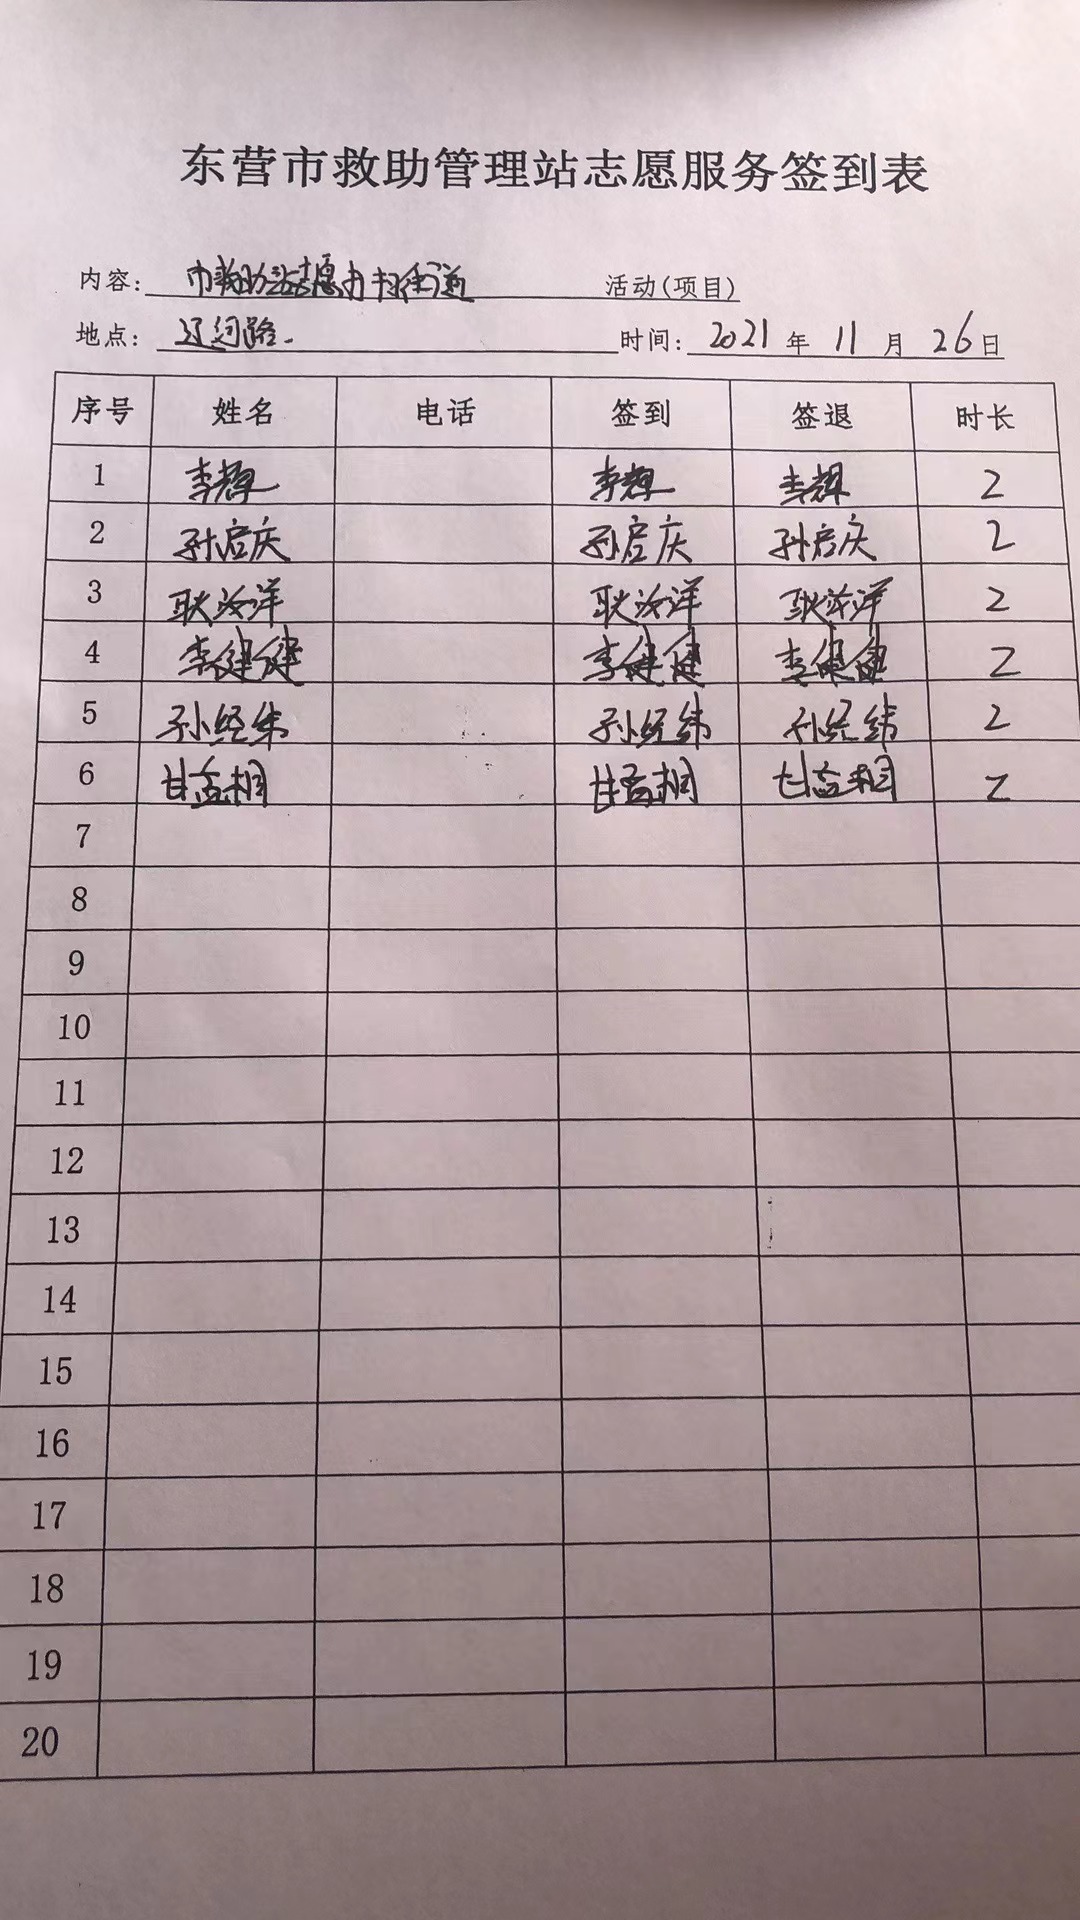 东营市救助管理站志愿服务签到表
内容: 市救助站志愿打扫街道 活动(项目)
地点: 辽河路. 时间: 2021 年 11 月 26 日
序号 姓名 电话 签到 签退 时长
1 李辉 李辉 李辉 2
2 孙启庆 孙启庆 孙启庆 2
3 耿汝洋 耿汝洋 耿汝洋 2
4 李健健 李健健 李健健 2
5 孙经纬 孙经纬 孙经纬 2
6 甘益相 甘益相 甘益相 2
7
8
9
10
11
12
13
14
15
16
17
18
19
20